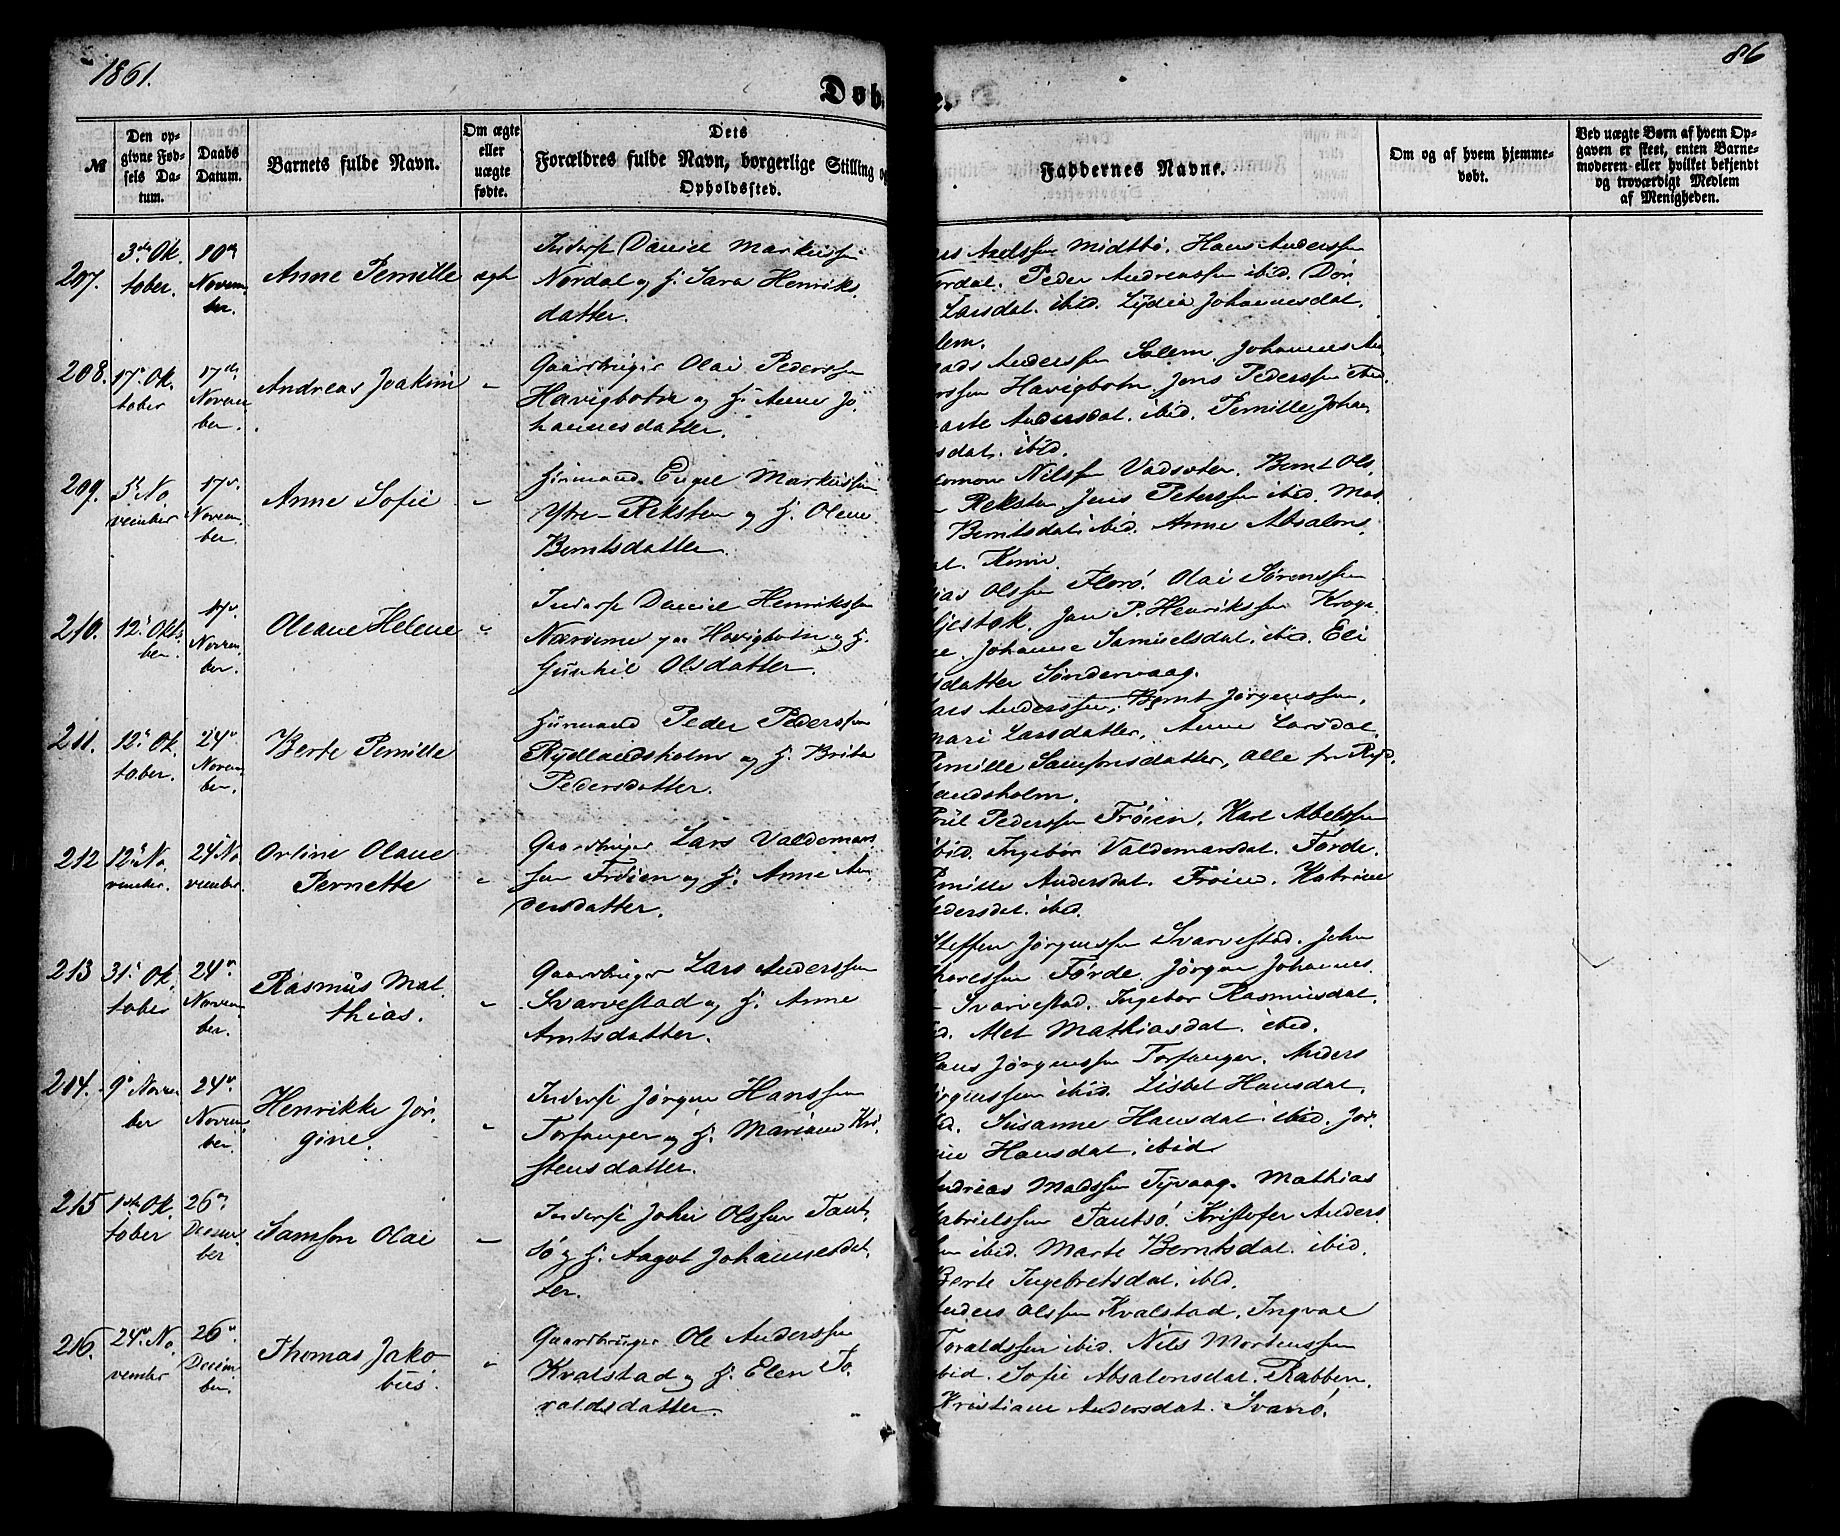 1861.
86
Døb
e.
№
Den opgivne Fødsels Datum.
Daabs Datum.
Barnets fulde Navn.
Om ægte eller uægte fødte.
Dets
Forældres fulde Navn, borgerlige Stilling og
Opholdssted.
Faddernes Navne.
Om og af hvem hjemmedøbt.
Ved uægte Børn af hvem Opgaven er skeet, enten Barnemoderen eller hvilket bekjendt og troværdigt Medlem af Menigheden.
207.
3die Oktober.
10de November.
Anne Pernille
ægte
Inderst Daniel Markussen
Nordal og H. Sara Henriks
datter.
Axelssen Midtbö. Hans Anderssen
Peder Andreassen ibid.
Larsdat. ibid. Lydia Johannesdat.
208.
17. Oktober
17de November.
Andreas Joakim
"
Gaardbruger Olai Pederssen
Havigbotn og H. Anne Jo
hannesdatter.
Anderssen Solem. Johannes An
Havigbotn. Jens Pederssen ibid.
Andersdat. ibid. Pernille Johan
sdat. ibid.
209.
5. November
17. November.
Anne Sofie
"
Huusmand Engel Markussen
Ytre-Reksten og H. Olene
Berntsdatter.
Nilssen Vadsöter. Bernt Ols
Reksten. Jens Peterssen ibid.
Berntsdat. ibid. Anne Absalons
Kinn.
210.
12. Oktober.
17. November.
Oleane Helene
"
Inderst Daniel Henrikssen
Havigbotn og H.
Gunhil Olsdatter.
Olssen Florö. Olai Sörenssen
Jan P. Henrikssen
Johanne Samuelsdat. ibid. Eli
sdatter Söndervaag.
211.
12. Oktober.
24. November.
Berte Pernille
Huusmand Peder Pederssen
Rydlandsholm og H. Brita
Pedersdatter.
Anderssen, Bernt Jörgenssen,
Mari Larsdatter, Anne Larsdat.
Pernille Samsonsdatter, alle fra Ryd
landsholm.
212
12. November.
24 November.
Orline Olave
Pernette
"
Gaardbruger Lars Valdemars
sen Fröien og H. Anne An
dersdatter.
Pederssen Fröien, Karl Abelssen
ibid. Ingebor Valdemarsdat. Förde.
Pernille Andersdat. Fröien. Katrine
Pedersdat. ibid.
213
31. Oktober
24. November.
Rasmus Mat
thias.
"
Gaardbruger Lars Anderssen
Svarvestad og H. Anne
Arntsdatter.
Steffen Jörgenssen Svarvestad. John
Förde, Jörgen Johannes
Svarvestad. Ingebor Rasmusdat.
Met Mathiasdat. ibid.
214.
9. November
24. November.
Henrikke Jör
gine.
"
Inderst Jörgen Hanssen
Torfanger og H. Mariane Kri
stensdatter.
Hans Jörgenssen Torfanger. Anders
Jörgenssen ibid. Lisbet Hansdat.
ibid. Susanne Hansdat. ibid. Jör
Hansdat. ibid
215
1ste Oktober
26de December
Samson Olai
"
Inderst John Olssen Taut
sö og H. Aagot Johannesdat
ter.
Andreas Madssen Tyvaag. Mathias
Gabrielssen Tautsö. Kristofer Anders
sen ibid. Marte Berntsdat. ibid.
Berte Ingebretsdat. ibid.
216.
24. November
26. December.
Thomas Jako
bus.
"
Gaardbruger Ole Anderssen
Kvalstad og H. Elen To
raldsdatter.
Anders Olssen Kvalstad. Ingval
Toraldssen ibid. Nils Mortenssen
ibid. Sofie Absalonsdat. Rabben.
Kristiane Andersdat. Svanö.